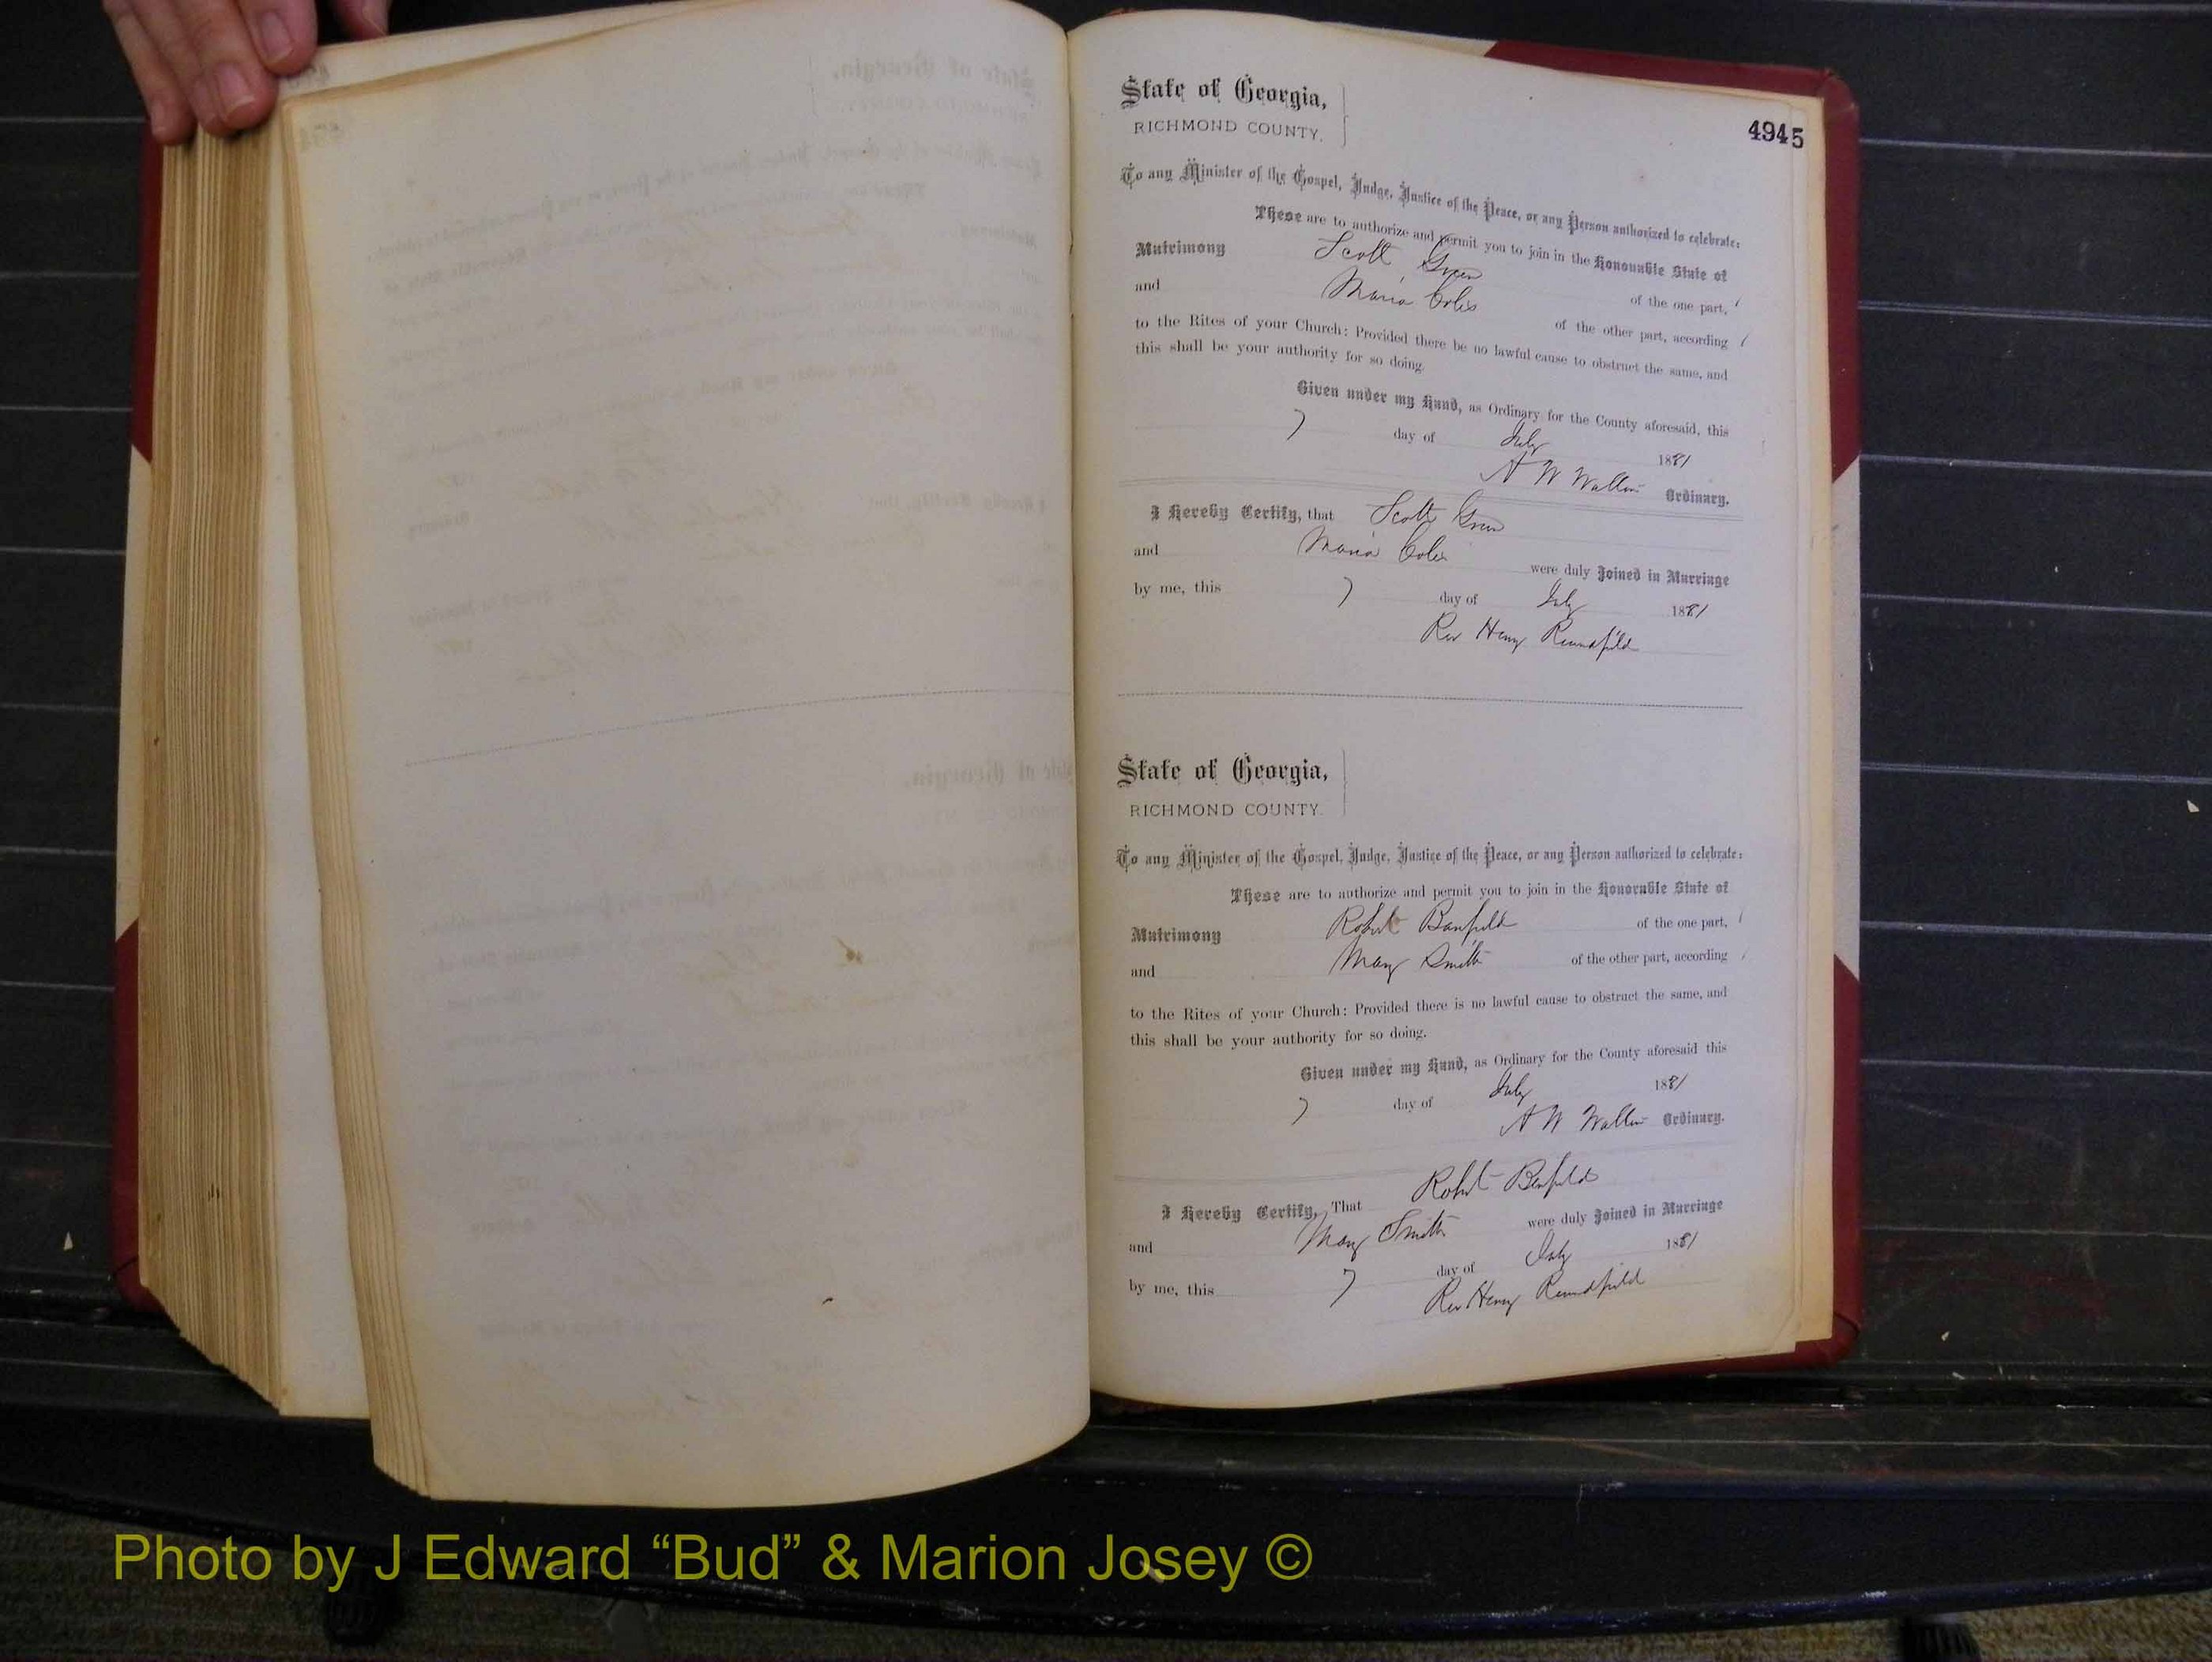 4945
State of Georgia,
RICHMOND COUNTY.
To any Minister of the Gospel, Judge, Justice of the Peace, or any Person authorized to celebrate:
These are to authorize and permit you to join in the Honourable State of
Matrimony Scott Green of the one part,
and Maria Coles of the other part, according
to the Rites of your Church: Provided there be no lawful cause to obstruct the same, and
this shall be your authority for so doing.
Given under my Hand, as Ordinary for the County aforesaid, this
7 day of July 1881
A W Walton Ordinary.
I Hereby Certify, that Scott Green
and Maria Coles were duly Joined in Marriage
by me, this 7 day of July 1881
Rev Henry Roundfild
State of Georgia,
RICHMOND COUNTY.
To any Minister of the Gospel, Judge, Justice of the Peace, or any Person authorized to celebrate:
These are to authorize and permit you to join in the Honorable State of
Matrimony Robert Banfield of the one part,
and Mary Smith of the other part, according
to the Rites of your Church: Provided there is no lawful cause to obstruct the same, and
this shall be your authority for so doing.
Given under my Hand, as Ordinary for the County aforesaid this
7 day of July 1881
A W Walton Ordinary.
I Hereby Certify, That Robt Benfield
and Mary Smith were duly Joined in Marriage
by me, this 7 day of July 1881
Rev Henry Roundfild
Photo by J Edward “Bud” & Marion Josey ©